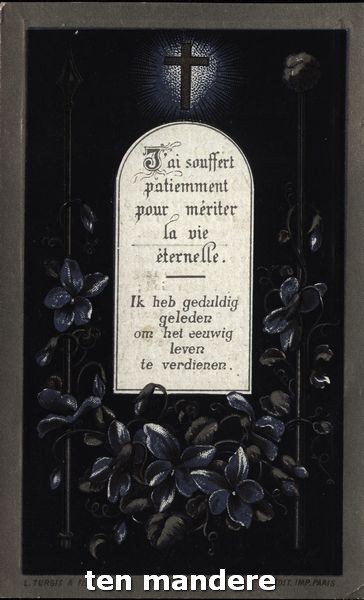 J'ai souffert
patiemment
pour mériter
la vie
éternelle.
Ik heb geduldig
geleden
om het eeuwig
leven
te verdienen.
L. TURGIS & DIT. IMP. PARIS
ten mandere